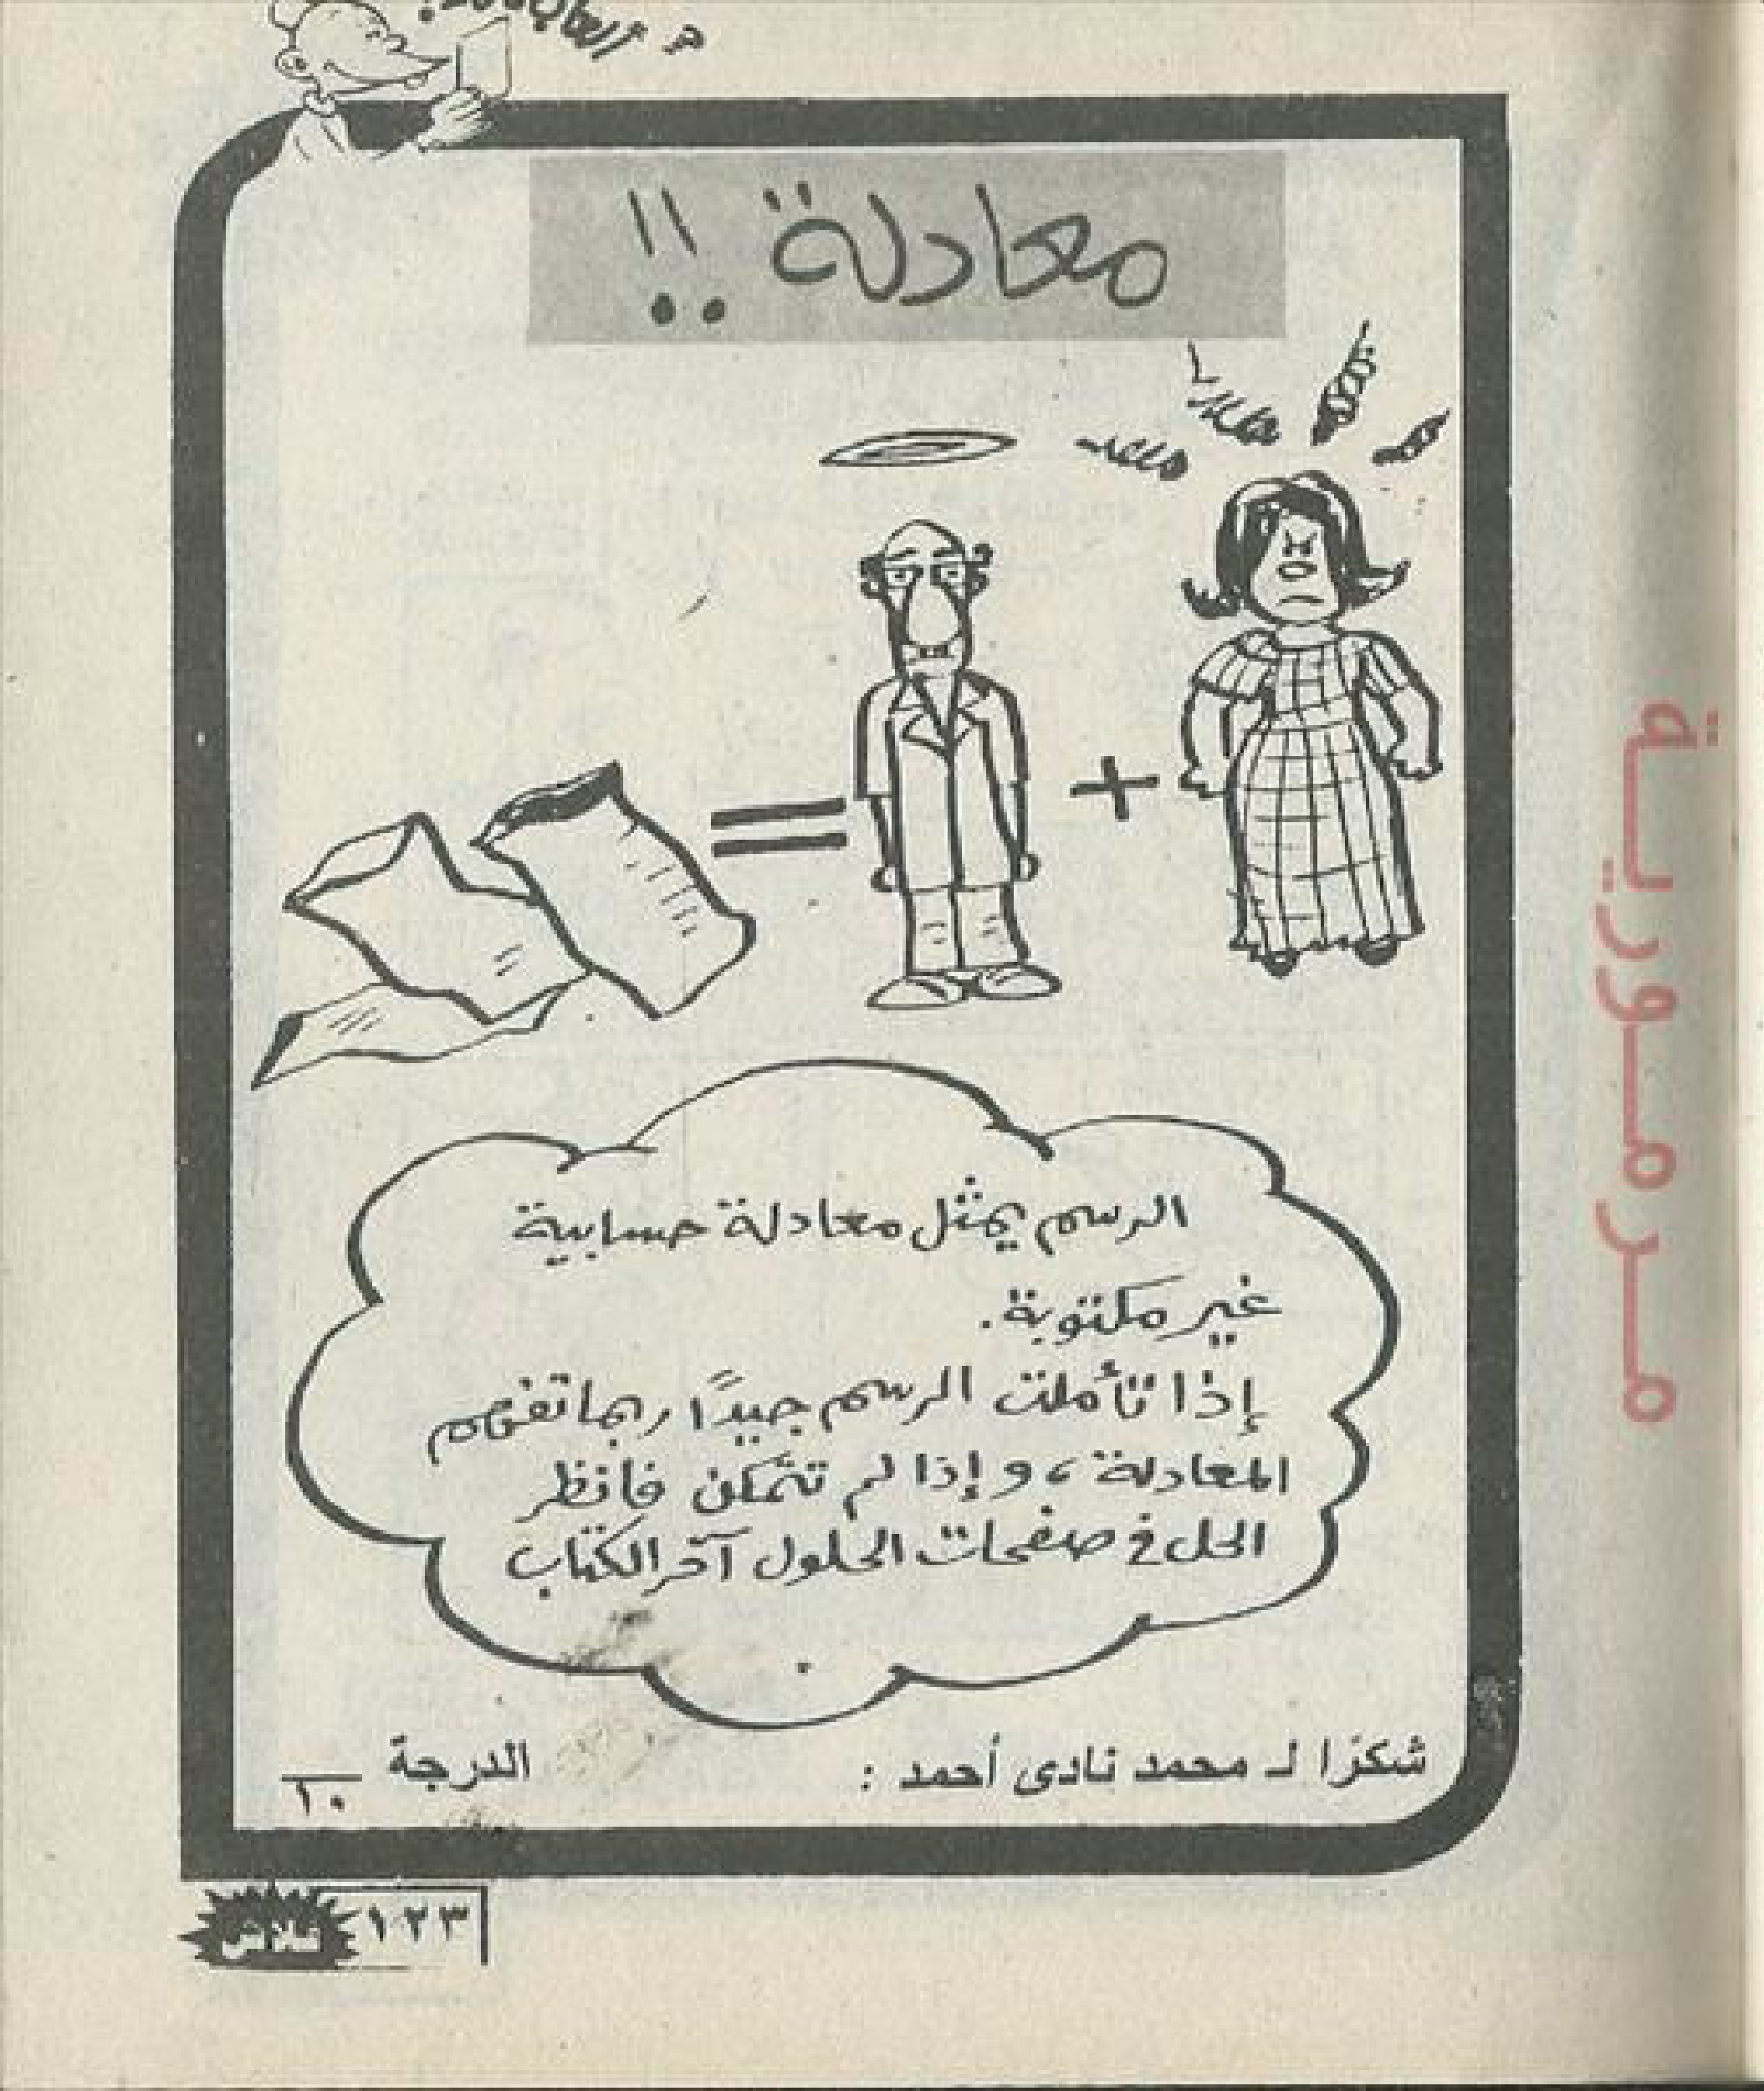 معادلة !!
+
=
الرسم يمثل معادلة حسابية
غير مكتوبة.
إذا تأملت الرسم جيدًا ربما تفهم
المعادلة، وإذا لم تتمكن فانظر
الحل في صفحات الحلول آخر الكتاب
شكرًا لـ محمد نادى أحمد :
الدرجة ١٠
١٢٣ فلاش
مرمورية